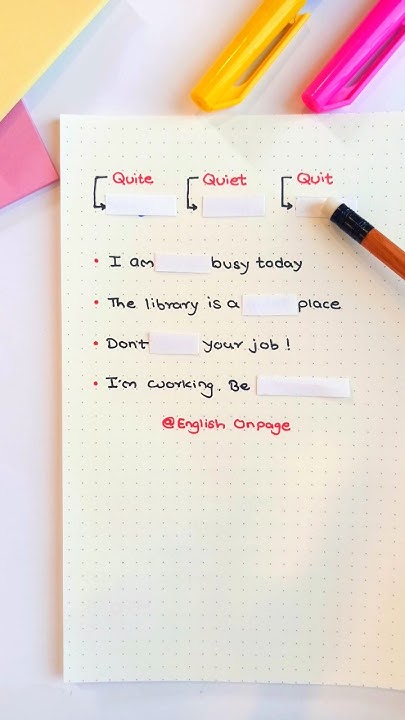 Quite Quiet Quit
• I am busy today
• The library is a place
• Dont your job!
• I'm working. Be
@English Onpage